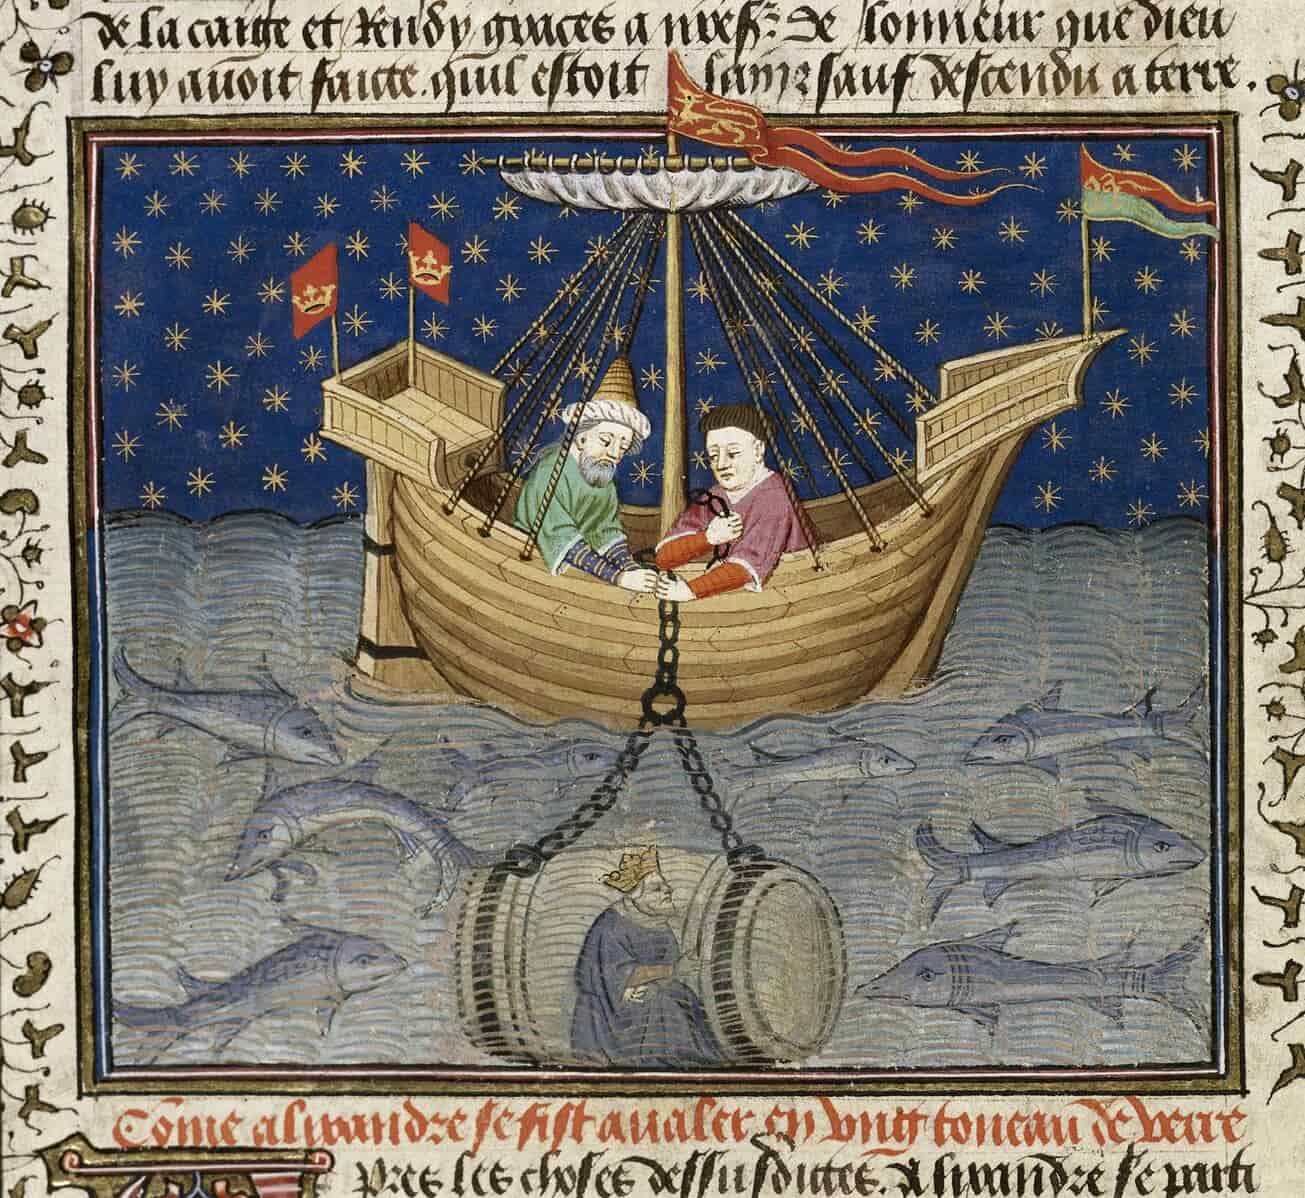 de la caige et Rendy graces a nr̃e sr̃. De lonneur que dieu
luy auoit faicte. quil estoit sain & sauf descendu a terre.
Cõme alixandre se fist aualer en vng tonneau de verre
Pres les choses dessusdictes. Alixandre se parti